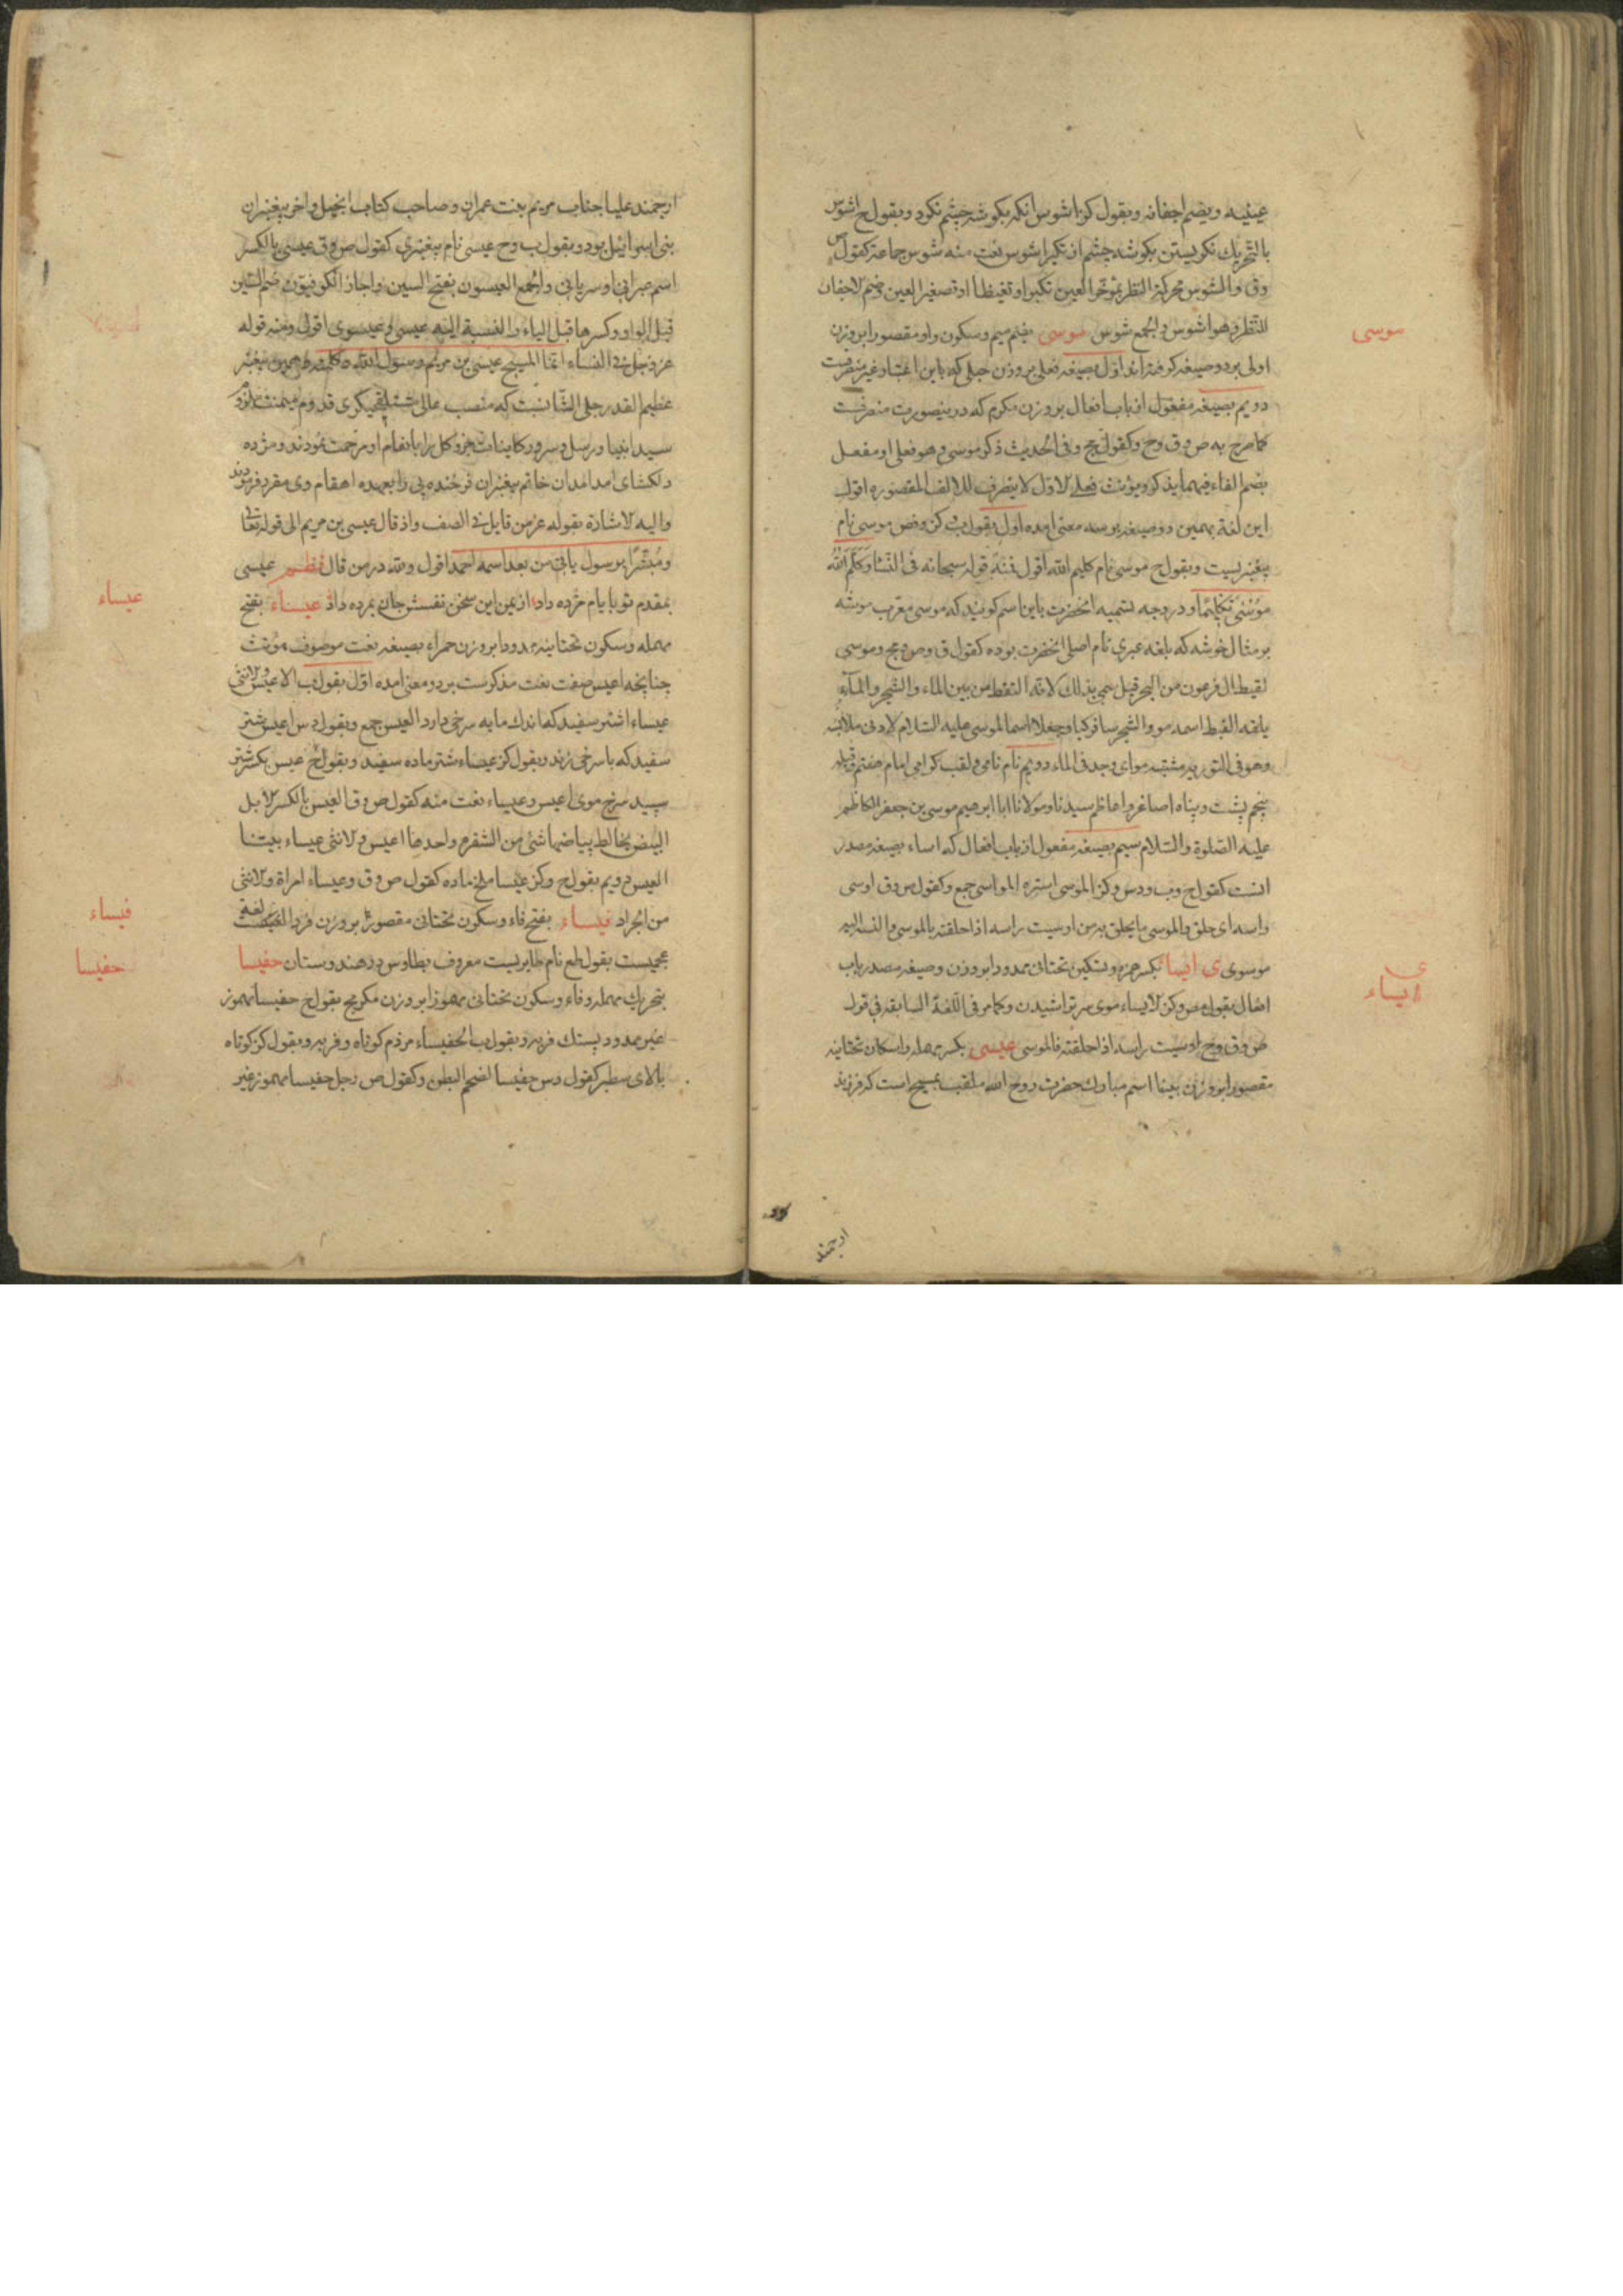 عینیه ویضم اجفانه وبقول کز اشوس انکه بکوشه چشم نکرد وبقول ح اشوس
بالتحریك نکریستن بکوشه چشم از تکبر اشوس نعت منه شوس جماعة کقول ص
وق والشوس محرکة النظر بمؤخر العین تکبرا و تغیظا او تصغیر العین وضم الاجفان
للنظر وهو اشوس والجمع شوس موسی بضم میم وسکون واو مقصورا بر وزن
موسی
اولی بر دو صیغه کرفته اند اول بصیغه فعلی بر وزن حبلی که باین اعتبار غیر منصرفست
دویم بصیغه مفعول از باب افعال بر وزن مکرم که درینصورت منصرفست
کما صرح به ص وق وح وکقول مج وفی الحدیث ذکر موسی وهو فعلی او مفعل
بضم الفاء فیهما یذکر ویؤنث فعلی الاول لا ینصرف للالف المقصوره اقول
این لغة بهمین دو صیغه بر سه معنی امده اول بقول ب و کز وفص موسی نام
پیغمبریست وبقول ح موسی نام کلیم الله اقول منه قوله سبحانه فی النساء وکلم الله
موسی تکلیما ودر وجه تسمیه انحضرت باین اسم کویند که موسی معرب موشه
بر مثال خوشه که بلغه عبری نام اصلی انحضرت بوده کقول ق وص ومج وموسی
لقیط ال فرعون من البحر قیل سمی بذلك لانه التقط من بین الماء والشجر والماء
بلغه القبط اسمه مو والشجر سا فرکبا وجعلا اسما لموسی علیه السلام لادنی ملابسه
وهو فی التوریه مشتبه موای وجد فی الماء دویم نام نامی ولقب کرامی امام هفتم قبله
پنجم پشت وپناه اصاغر واعاظم سیدنا ومولانا ابا ابرهیم موسی بن جعفر الکاظم
علیه الصلوة والسلام سیم بصیغه مفعول از باب افعال که اساء بصیغه مصدر
انست کقول ح وب ودس وکز الموسی استره المواسی جمع وکقول ص وق اوسی
راسه ای حلق والموسی ما یحلق به من اوسیت راسه اذا حلقته بالموسی والنسبة الیه
موسوی ی ایسا بکسر همزه وتسکین تحتانی ممدودا بر وزن وصیغه مصدر باب
ی
ایساء
افعال بقول مص وکز الایساء موی سر تراشیدن وکما مر فی اللغة السابقه فی قول
ص وق وح اوسیت راسه اذا حلقته فالموسی عیسی بکسر مهمله واسکان تحتانیه
مقصورا بر وزن بینا اسم مبارك حضرت روح الله ملقب بمسیح است که فرزند
ارجمند
ارجمند علیا جناب مریم بنت عمران وصاحب کتاب انجیل واخر پیغمبران
بنی اسرائیل بود وبقول ب وح عیسی نام پیغمبری کقول ص وق عیسی بالکسر
اسم عبرانی او سریانی والجمع العیسون بفتح السین واجاز الکوفیون ضم السین
قبل الواو وکسرها قبل الیاء والنسبة الیه عیسی وعیسوی اقول ومنه قوله
عز وجل فی النساء انما المسیح عیسی بن مریم رسول الله وکلمته وهمین پیغمبر
عظیم القدر جلی الشانست که منصب عالی
سید انبیا ورسل وسرور کاینات جزو کل را بانعام او مرحمت نمودند ومژده
دلکشای امد امدان خاتم پیغمبران فرخنده پی را بعهده اهتمام وی مقرر فرمودند
والیه الاشارة بقوله عز من قایل فی الصف واذ قال عیسی بن مریم الی قوله تعالی
ومبشرا برسول یاتی من بعد اسمه احمد اقول ولله در من قال نظم عیسی
بمقدم تو بایام مژده داد از یمن این سخن نفسش جان بمرده داد عیساء بفتح
عیساء
مهمله وسکون تحتانیه ممدودا بر وزن حمراء بصیغه نعت موصوف مؤنث
چنانچه اعیس صفت نعت مذکرست بر دو معنی امده اول بقول ب الاعیس والانثی
عیساء اشتر سفید که اندك مایه سرخی دارد العیس جمع وبقول دس اعیس شتر
سفید که باسرخی زند وبقول کز عیساء شتر ماده سفید وبقول ح عیس بکسر شتر
سپید سرخ موی اعیس وعیساء نعت منه کقول ص وق العیس بالکسر الابل
البیض یخالط بیاضها شیء من الشقرة واحدها اعیس والانثی عیساء بینتا
العیس دویم بقول ح وکز عیسا ملخ ماده کقول ص وق وعیساء امراة والانثی
من الجراد فیساء بفتح فاء وسکون تحتانی مقصورا بر وزن فردا لغة
فیساء
عجمیست بقول طع نام طایریست معروف بطاوس در هندوستان حفیسا
حفیسا
بتحریك مهمله وفاء وسکون تحتانی مهموزا بر وزن مکرمج بقول ح حفیسا مهموز
غیر ممدود پستك فربه وبقول ب الحفیساء مردم کوتاه وفربه وبقول کز کوتاه
بالای سطبر کقول دس حفیسا الضخم البطن وکقول ص رجل حفیسا مهموز غیر